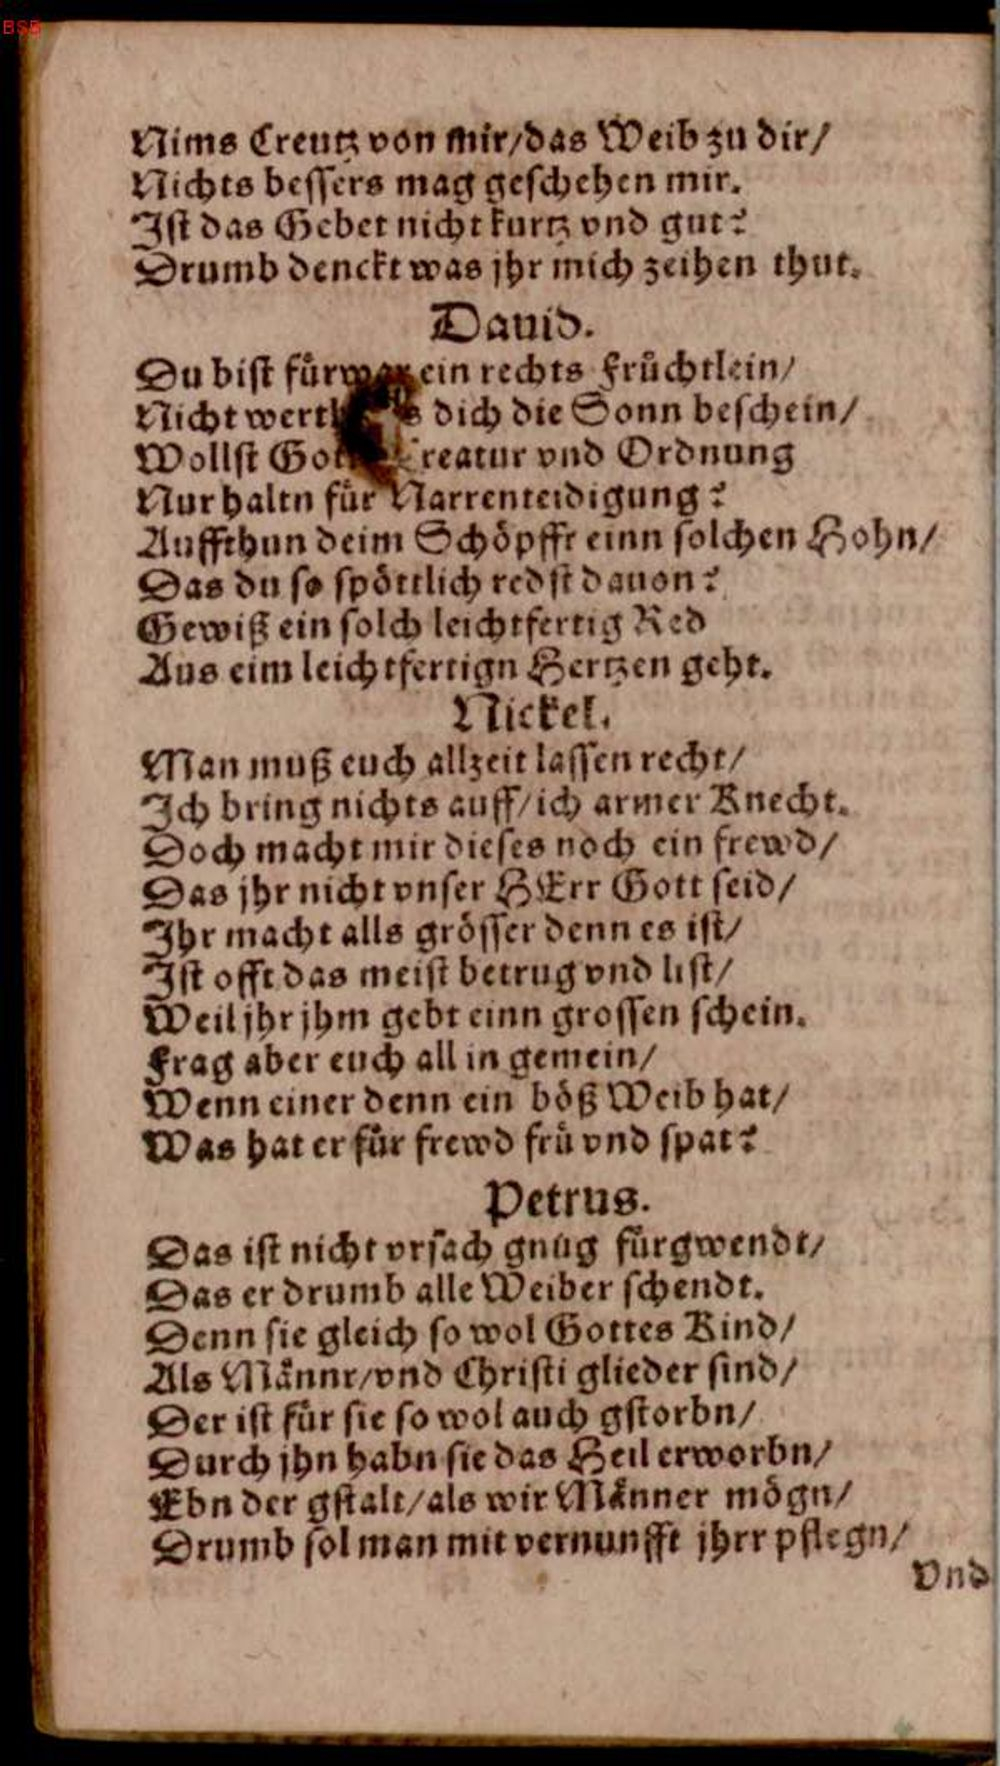 BSB
Nims Creutz von mir/das Weib zu dir/
Nichts bessers mag geschehen mir.
Ist das Gebet nicht kurtz vnd gut?
Drumb denckt was jhr mich zeihen thut.
Dauid.
Du bist fürwar ein rechts Früchtlein/
Nicht werth dich die Sonn beschein/
Wollst Creatur vnd Ordnung
Nur haltn für Narrenteidigung?
Auffthun deim Schöpffr einn solchen Hohn/
Das du so spöttlich redst dauon?
Gewiß ein solch leichtfertig Red
Aus eim leichtfertign Hertzen geht.
Nickel.
Man muß euch allzeit lassen recht/
Ich bring nichts auff/ich armer Knecht.
Doch macht mir dieses noch ein frewd/
Das jhr nicht vnser HErr Gott seid/
Ihr macht alls grösser denn es ist/
Ist offt das meist betrug vnd list/
Weil jhr jhm gebt einn grossen schein.
Frag aber euch all in gemein/
Wenn einer denn ein böß Weib hat/
Was hat er für frewd frü vnd spat?
Petrus.
Das ist nicht vrsach gnug fürgwendt/
Das er drumb alle Weiber schendt.
Denn sie gleich so wol Gottes Kind/
Als Männr/vnd Christi glieder sind/
Der ist für sie so wol auch gstorbn/
Durch jhn habn sie das Heil erworbn/
Ebn der gstalt/als wir Männer mögn/
Drumb sol man mit vernunfft jhrr pflegn/
Vnd